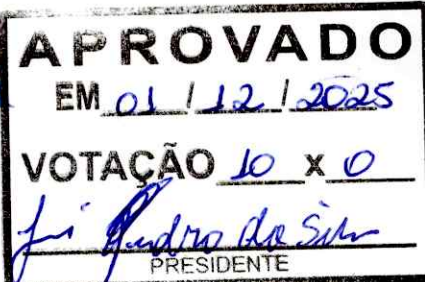 APROVADO
EM 01 / 12 / 2025
VOTAÇÃO 10 x 0
da Silv
PRESIDENTE